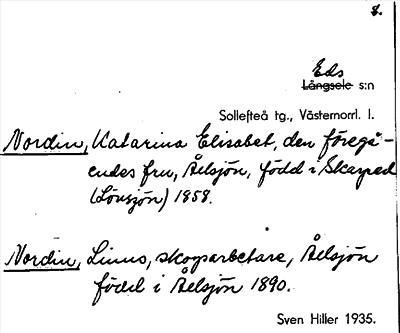 8.
Eds
Långsele s:n
Sollefteå tg., Västernorrl. l.
Nordin, Katarina Elisabet, den föregå-
endes fru, Ålsjön, född i Skarped
(Lönsjön) 1858.
Nordin, Linus, skogsarbetare, Ålsjön
född i Ålsjön 1890.
Sven Hiller 1935.